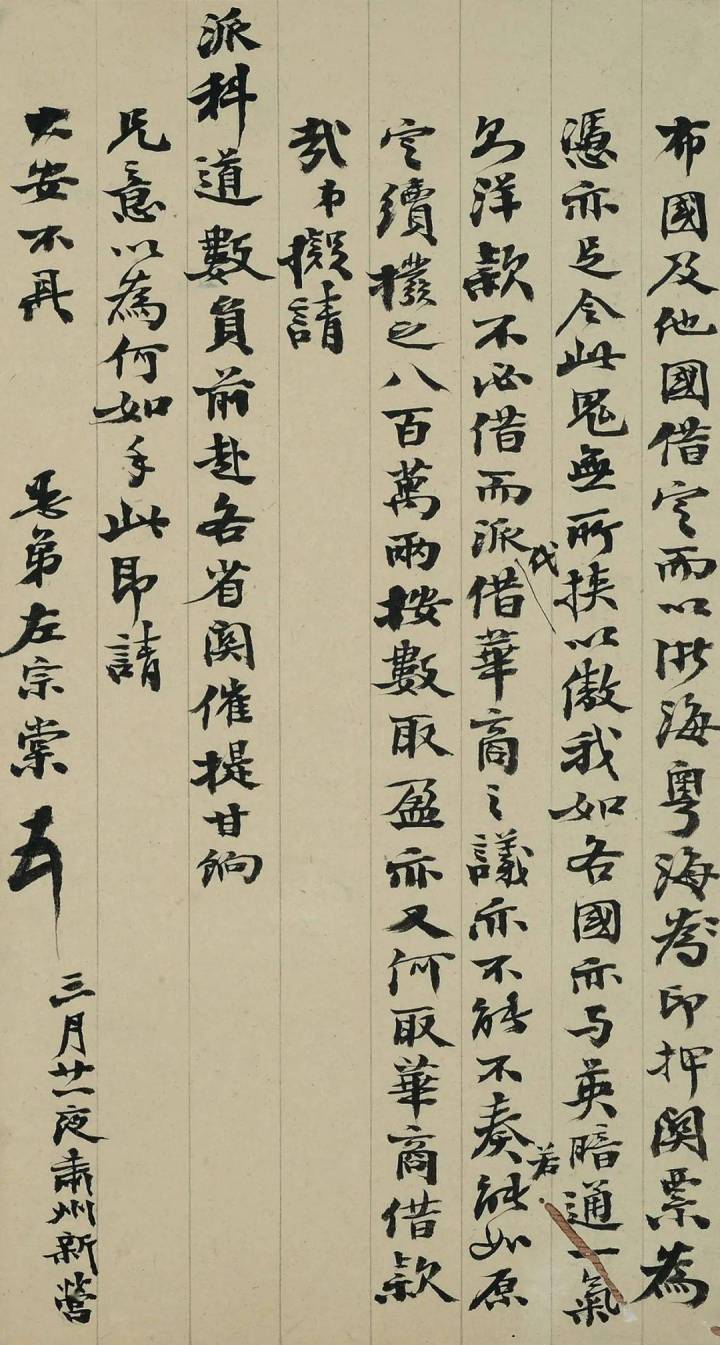 布國及他國借定而以浙海粵海等印押関票為
憑亦足令此鬼無所挾以傲我如各國亦与英暗通一氣
則洋款不必借而派代借華商之議亦不能不奏若能如原
定續撥之八百萬兩按數取盈亦又何取華商借款
哉弟擬請
派科道數員前赴各省関催提甘餉
兄意以為何如手此即請
大安不具
愚弟左宗棠
三月廿一夜肅州新營